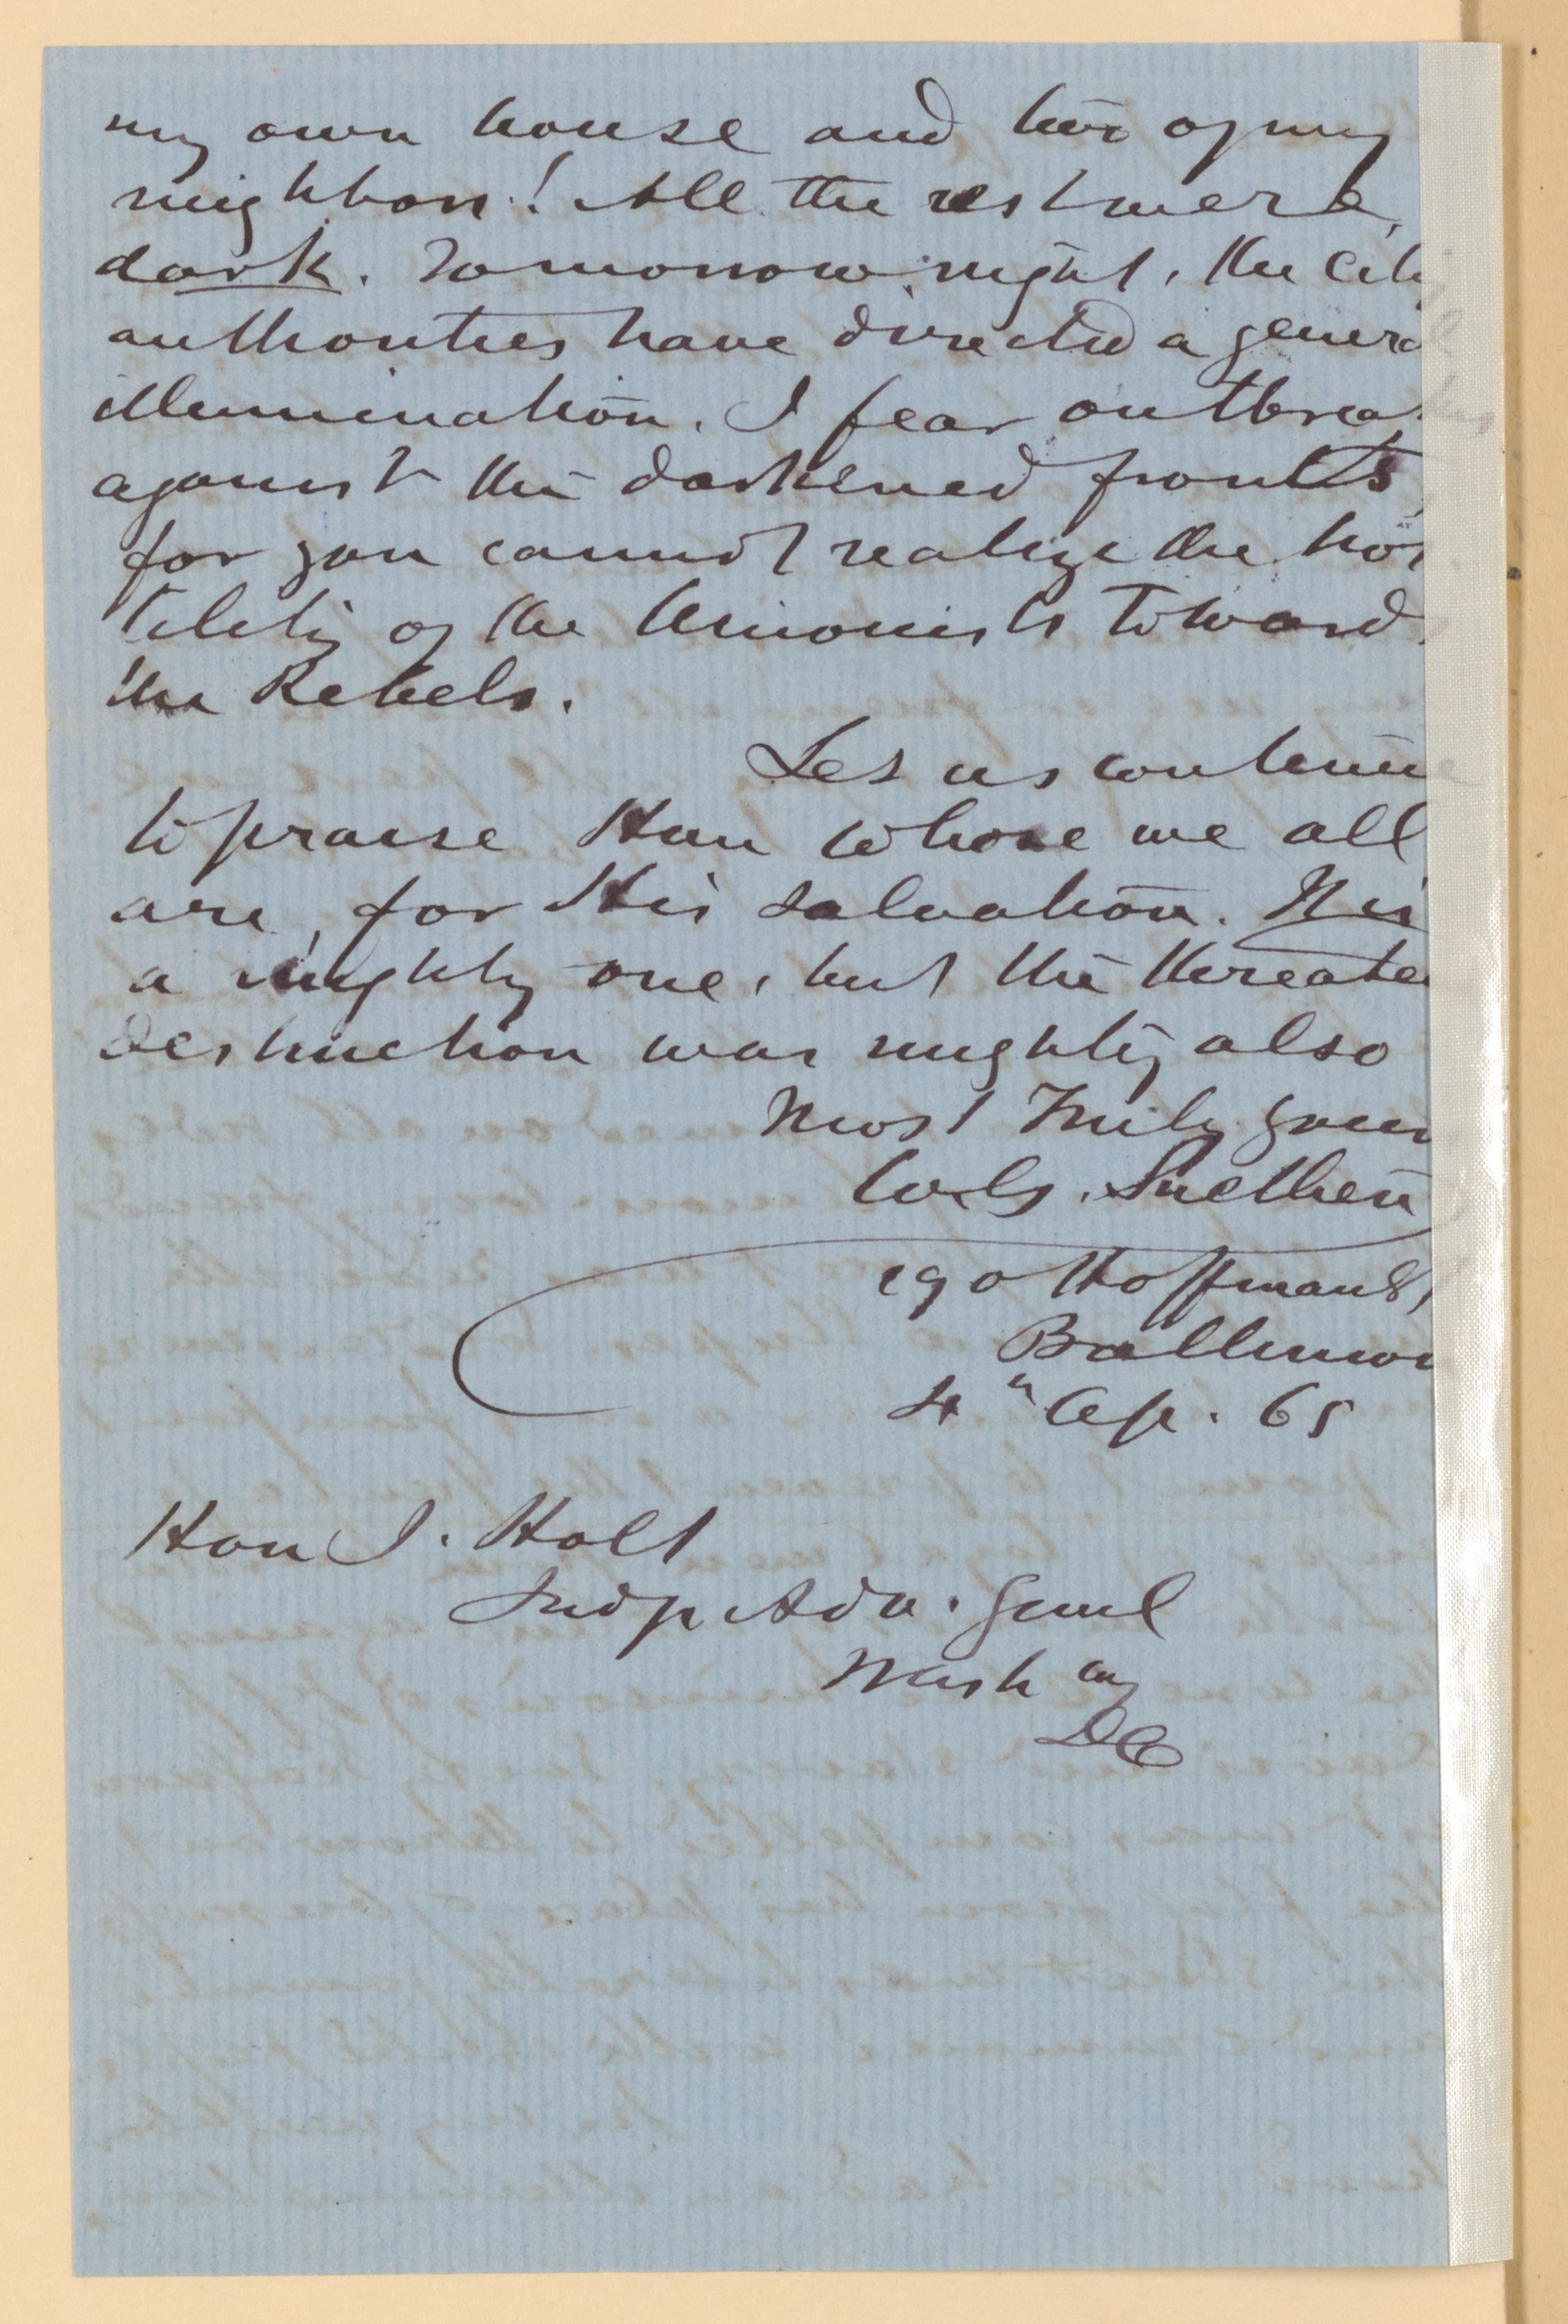 my own house and two of my
neighbors! All the rest were
dark. Tomorrow night, the City
authorities have directed a genera
illumination. I fear outbreak
against the darkened fronts
for you cannot realize the hos
tility of the Unionists towards
the Rebels.
Let us continue
to praise Him whose we all
are, for His salvation. His
a mighty one, but the threate
destruction was mighty also
Most Truly yours
W. G. Snethen
190 Hoffman St,
Baltimor
4th Ap. 65
Hon J. Holt
Judge Adv. Genl
Washng
DC